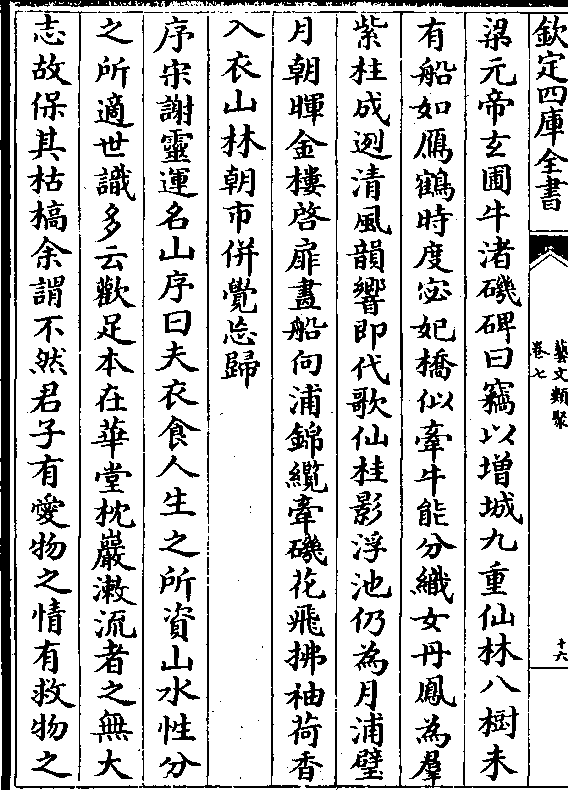 欽定四庫全書
藝文類聚
卷七
十六
梁元帝玄圃牛渚磯碑曰竊以增城九重仙林八樹未
有船如鴈鶴時度宓妃橋似牽牛能分織女丹鳳為羣
紫柱成迾清風韻響即代歌仙桂影浮池仍為月浦璧
月朝暉金樓啓扉畫船向浦錦纜牽磯花飛拂袖荷香
入衣山林朝市併覺忘歸
序宋謝靈運名山序曰夫衣食人生之所資山水性分
之所適世識多云歡足本在華堂枕巖漱流者之無大
志故保其枯槁余謂不然君子有愛物之情有救物之